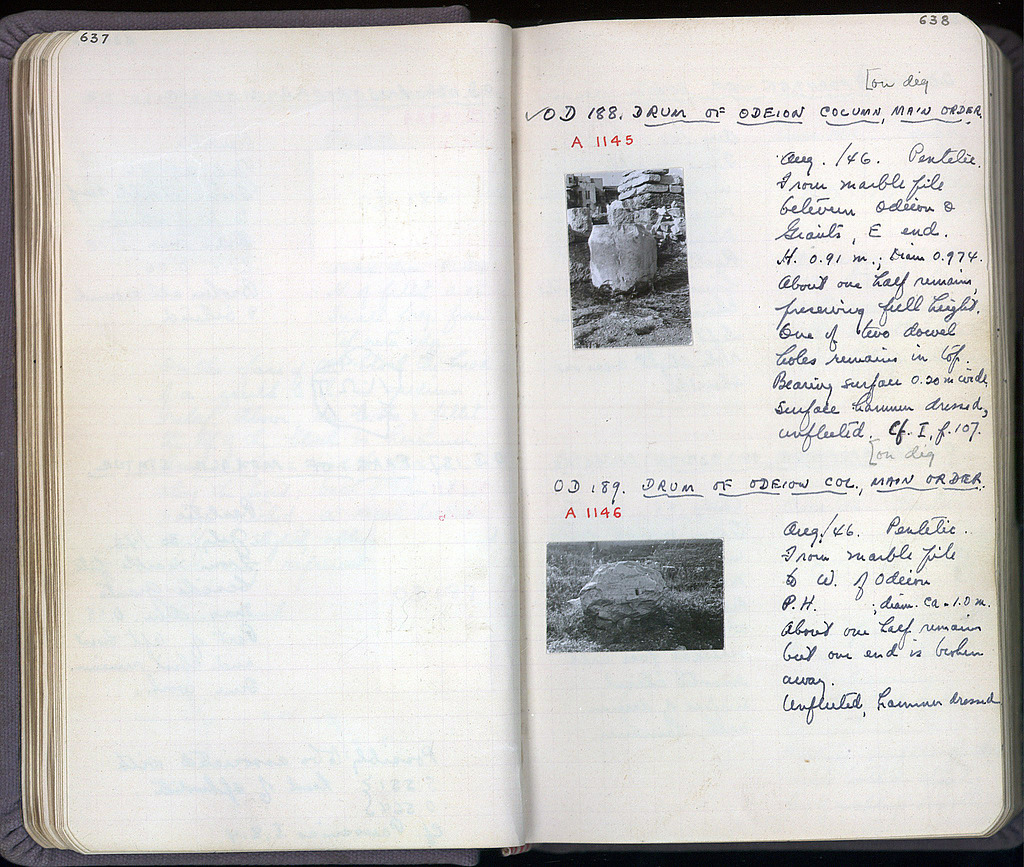 637
638
[on dig
✓OD 188. DRUM OF ODEION COLUMN, MAIN ORDER.
A 1145
Aug. /46. Pentelic.
From marble pile
between Odeion &
Giants, E end.
H. 0.91 m.; Diam 0.974.
About one half remains,
preserving full height.
One of two dowel
holes remains in top.
Bearing surface 0.20 m wide,
surface hammer dressed,
unfluted. Cf. I, p. 107.
[on dig
OD 189. DRUM OF ODEION COL., MAIN ORDER.
A 1146
Aug. /46. Pentelic.
From marble pile
to W. of Odeion
P.H. ; diam. ca. 1.0 m.
About one half remains
but one end is broken
away.
Unfluted, hammer dressed